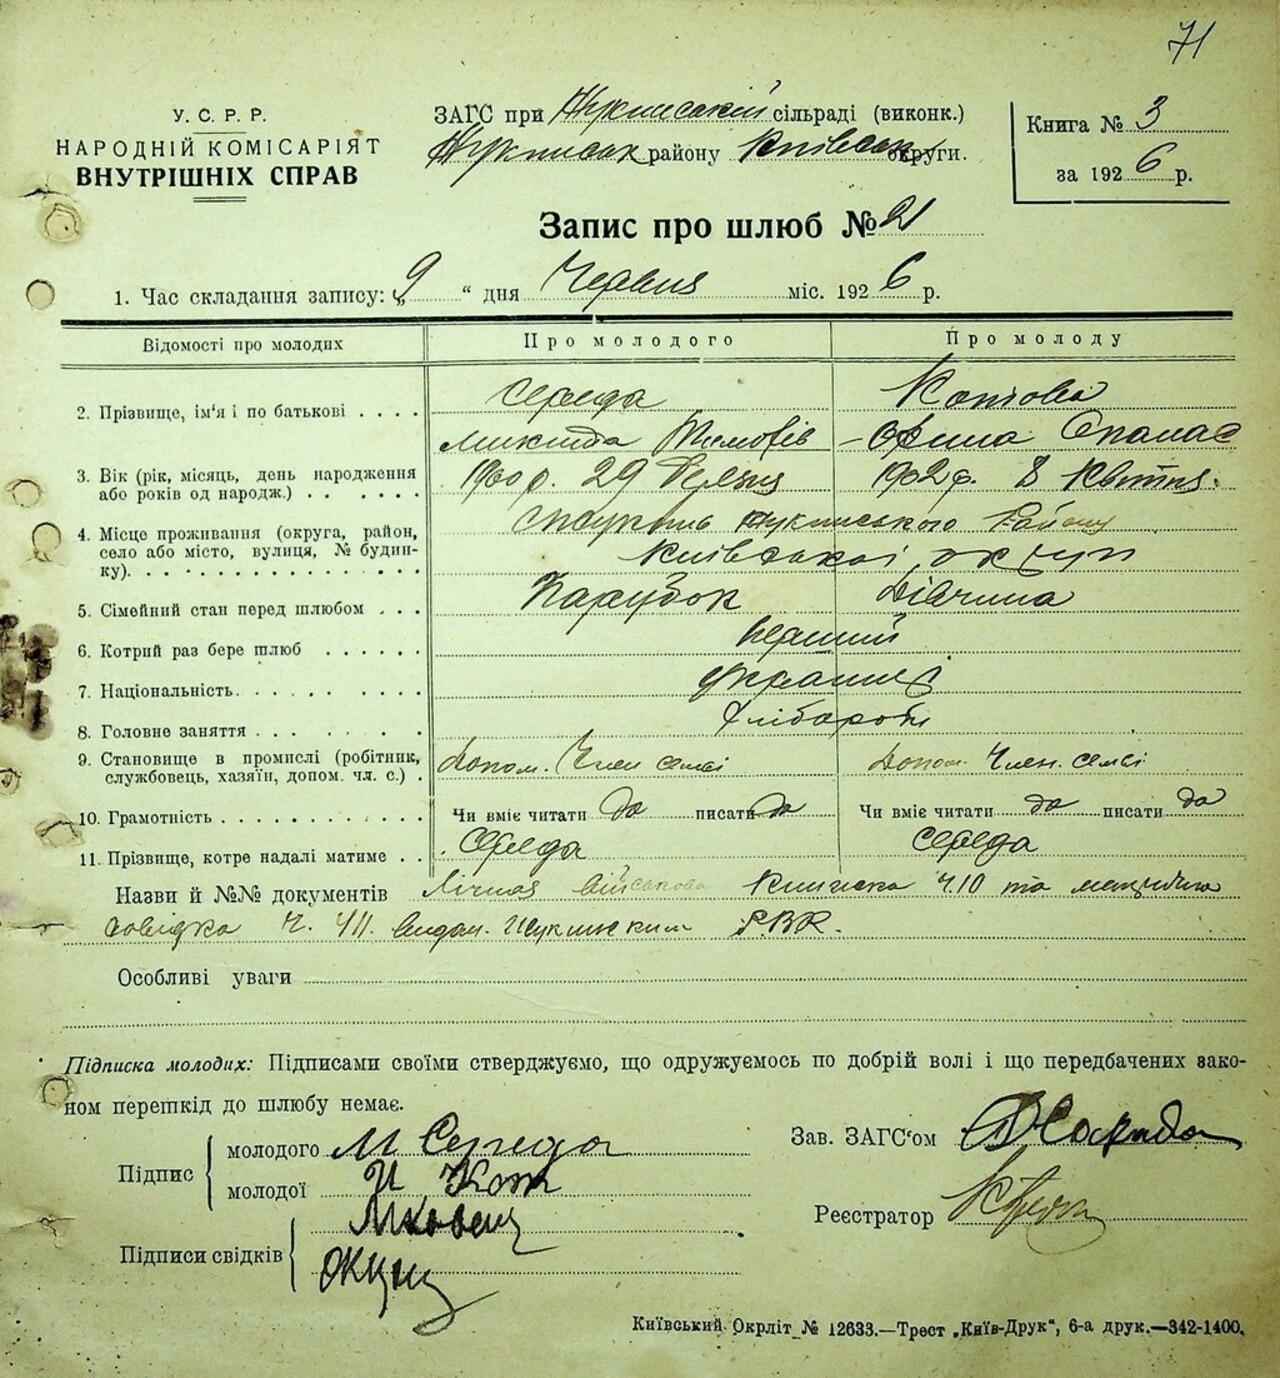 71
У. С. Р. Р.
НАРОДНІЙ КОМІСАРІЯТ
ВНУТРІШНІХ СПРАВ
ЗАГС при сільраді (виконк.)
району Київськ округи.
Книга № 3
за 1926 р.
Запис про шлюб № 21
1. Час складання запису: „9“ дня Червня міс. 1926 р.
Відомості про молодих Про молодого Про молоду
2. Прізвище, ім'я і по батькові . . . . Середа
Микита Тимофів Орина Опанас
3. Вік (рік, місяць, день народження
або років од народж.) . . . . . . . 1900 р. 29 1902 р. 8 Квітня.
4. Місце проживання (округа, район,
село або місто, вулиця, № будин-
ку). . . . . . . . . . . . . . . Району
Київської округи
5. Сімейний стан перед шлюбом . . . Парубок Дівчина
6. Котрий раз бере шлюб . . . . . . перший
7. Національність. . . . . . . . . . українці
8. Головне заняття . . . . . . . . хлібороби
9. Становище в промислі (робітник,
службовець, хазяїн, допом. чл. с.) . Допом. Член семї Допом. Член. семї
10. Грамотність . . . . . . . . . . . Чи вміє читати да писати да Чи вміє читати да писати да
11. Прізвище, котре надалі матиме . . Середа Середа
Назви й №№ документів Лічная військова Книжка Ч.10 та
довідка Ч. видан. Р.В.К.
Особливі уваги
Підписка молодих: Підписами своїми стверджуємо, що одружуємось по добрій волі і що передбачених зако-
ном перешкід до шлюбу немає.
Підпис
молодого М Середа
молодої
Підписи свідків
Зав. ЗАГС'ом
Реєстратор
Київський Окрліт № 12633.—Трест „Київ-Друк“, 6-а друк.—342-1400.